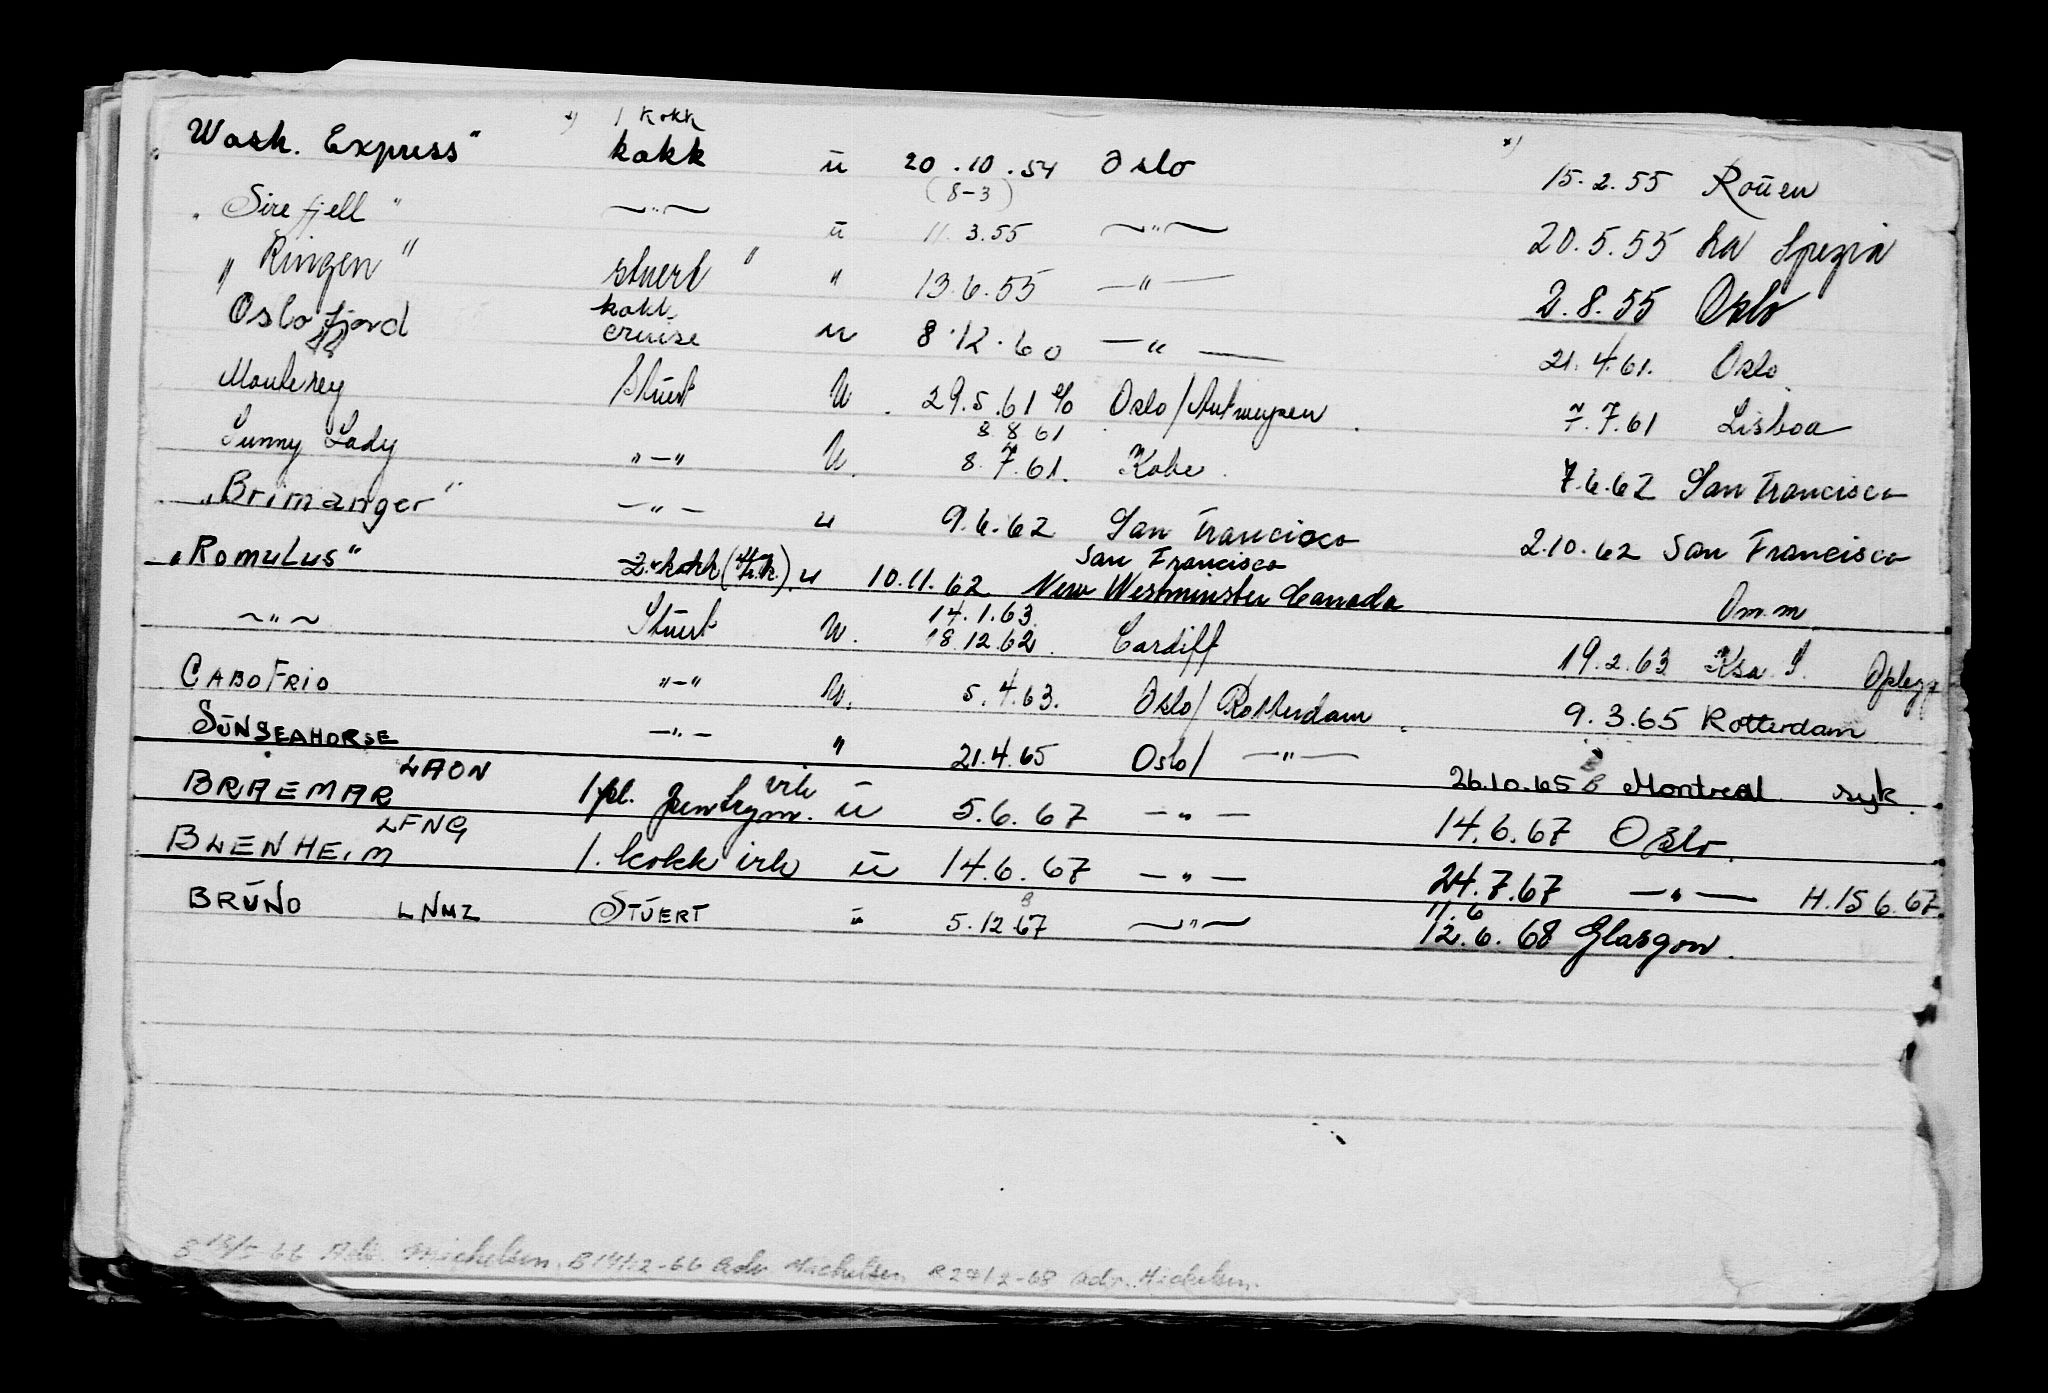 x) 1 kokk
"Wash. Express" kokk ü 20.10.54 Oslo x) 15.2.55 Roüen
(8-3)
"Sirefjell" —"— ü 11.3.55 —"— 20.5.55 La Spezia
"Ringen" stuert " " 13.6.55 —"— 2.8.55 Oslo
kokk
Oslofjord cruise u 8.12.60 —"— 21.4.61. Oslo
Monterey Stüert U. 29.5.61 % Oslo/Antwerpen. 7.7.61 Lisboa
8 8 61
Sunny Lady "—" U. 8.7.61. Kobe. 7.6.62 San Francisco
"Brimanger" —"— u 9.6.62 San Francisco 2.10.62 San Francisco
San Francisco
"Romulus" 2. kokk (). u 10.11.62 New Westminster Canada Om.m
14.1.63
—"— Stüert U. 18.12.62. Cardiff 19.2.63 Ksa. S. Oplegg
CABO FRIO "—" U. 5.4.63. Oslo/Rotterdam. 9.3.65 Rotterdam
SÜNSEAHORSE —"— " 21.4.65 Oslo/ —"— 26.10.65 B Montreal syk.
BRAEMAR LAON 1 pl. pentrym. vik ü 5.6.67 —"— 14.6.67 Oslo.
BLENHEIM LFNG 1. kokk vik ü 14.6.67 —"— 24.7.67 —"— H.15 6.67.
B 11.6
BRÜNO LNMZ STÜERT " 5.12.67 —"— 12.6.68 Glasgow.
B 13/5 66 Adv. Michelsen. B 14/12-66 Adv. Michelsen R 27/2-68 adv. Mickelsen.